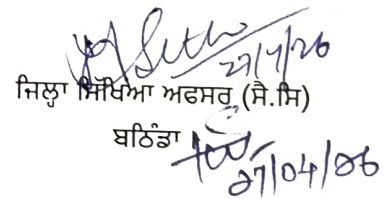 27/4/26
ਜਿਲ੍ਹਾ ਸਿੱਖਿਆ ਅਫਸਰ (ਸੈ.ਸਿ)
ਬਠਿੰਡਾ
27/04/26